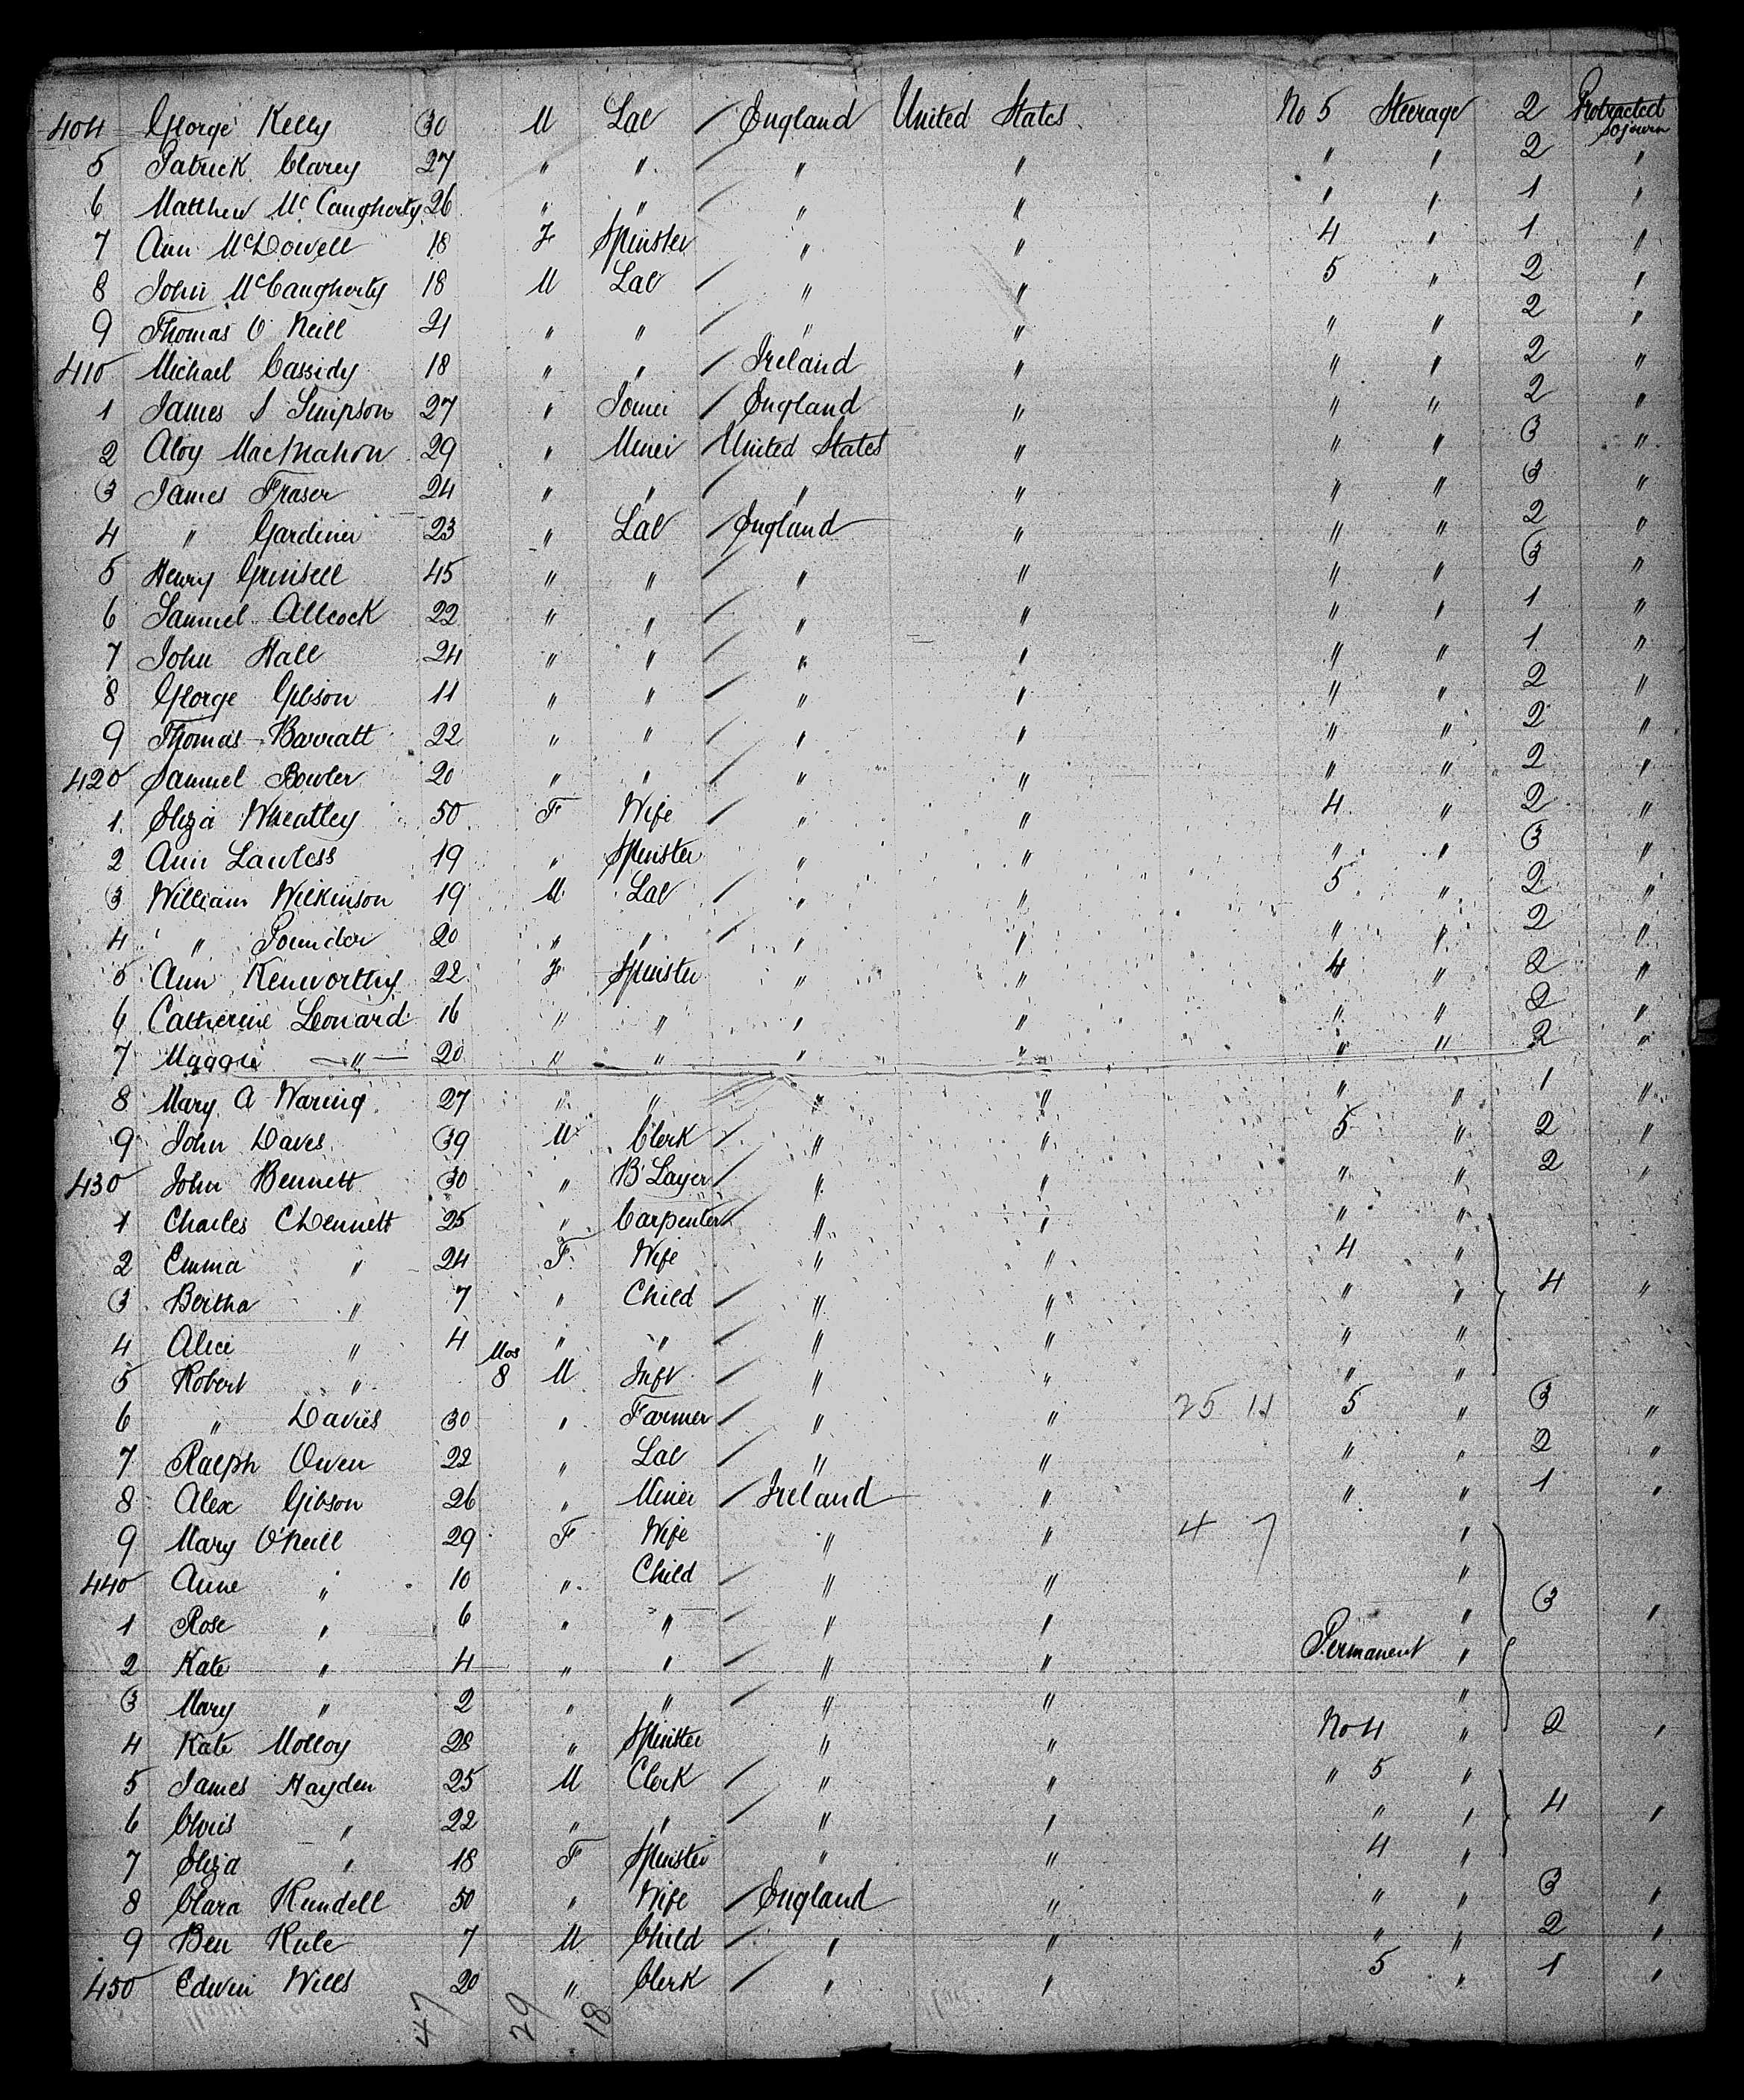 404 George Kelly 30 M Lab / England United States No 5 Steerage 2 Protracted sojourn
5 Patrick Clarey 27 " " / " " " " 2 "
6 Matthew McCaugherty 26 " " / " " " " 1 "
7 Ann McDowell 18 F Spinster " " 4 " 1 "
8 John McCaugherty 18 M Lab / " " 5 " 2 "
9 Thomas O Neill 21 " " / " " " " 2 "
410 Michael Cassidy 18 " " / Ireland " " " 2 "
1 James S Simpson 27 " Joiner / England " " " 2 "
2 Aloy MacMahon 29 " Miner / United States " " " 3 "
3 James Fraser 24 " " / " " " " 3 "
4 " Gardiner 23 " Lab / England " " " 2 "
5 Henry Grinsell 45 " " / " " " " 3 "
6 Samuel Allcock 22 " " / " " " " 1 "
7 John Hall 24 " " / " " " " 1 "
8 George Gibson 11 " " / " " " " 2 "
9 Thomas Barratt 22 " " / " " " " 2 "
420 Samuel Bowler 20 " " / " " " " 2 "
1 Eliza Wheatley 50 F Wife / " " 4 " 2 "
2 Ann Lawless 19 " Spinster " " " " 3 "
3 William Wilkinson 19 M Lab / " " 5 " 2 "
4 " Pounder 20 " " / " " " " 2 "
5 Ann Kenworthy 22 F Spinster " " 4 " 2 "
6 Catherine Leonard 16 " " " " " " 2 "
7 Maggie " 20 " " " " " " 2 "
8 Mary A Waring 27 " " " " " " 1 "
9 John Daves 39 M Clerk / " " 5 " 2 "
430 John Bennett 30 " B Layer / " " " " 2 "
1 Charles Chennett 25 " Carpenter / " " " "
2 Emma " 24 F Wife " " 4 "
3 Bertha " 7 " Child / " " " " 4 "
4 Alice " 4 " " / " " " "
5 Robert " Mos 8 M Inft " " " "
6 " Davies 30 " Farmer / " " 25 11 5 " 3 "
7 Ralph Owen 22 " Lab / " " " " 2 "
8 Alex Gibson 26 " Miner / Ireland " " " 1 "
9 Mary O'Neill 29 F Wife " " 4 7 "
440 Anne " 10 " Child / " " "
1 Rose " 6 " " / " " " 3 "
2 Kate " 4 " " / " " Permanent "
3 Mary " 2 " " / " " "
4 Kate Molloy 28 " Spinster " " No 4 " 2 "
5 James Hayden 25 M Clerk / " " " 5 "
6 Chris " 22 " " / " " " " 4 "
7 Eliza " 18 F Spinster " " 4 "
8 Clara Rundell 50 " Wife / England " " " 3 "
9 Ben Rule 7 M Child / " " " " 2 "
450 Edwin Wills 20 " Clerk / " " 5 " 1 "
47 29 18